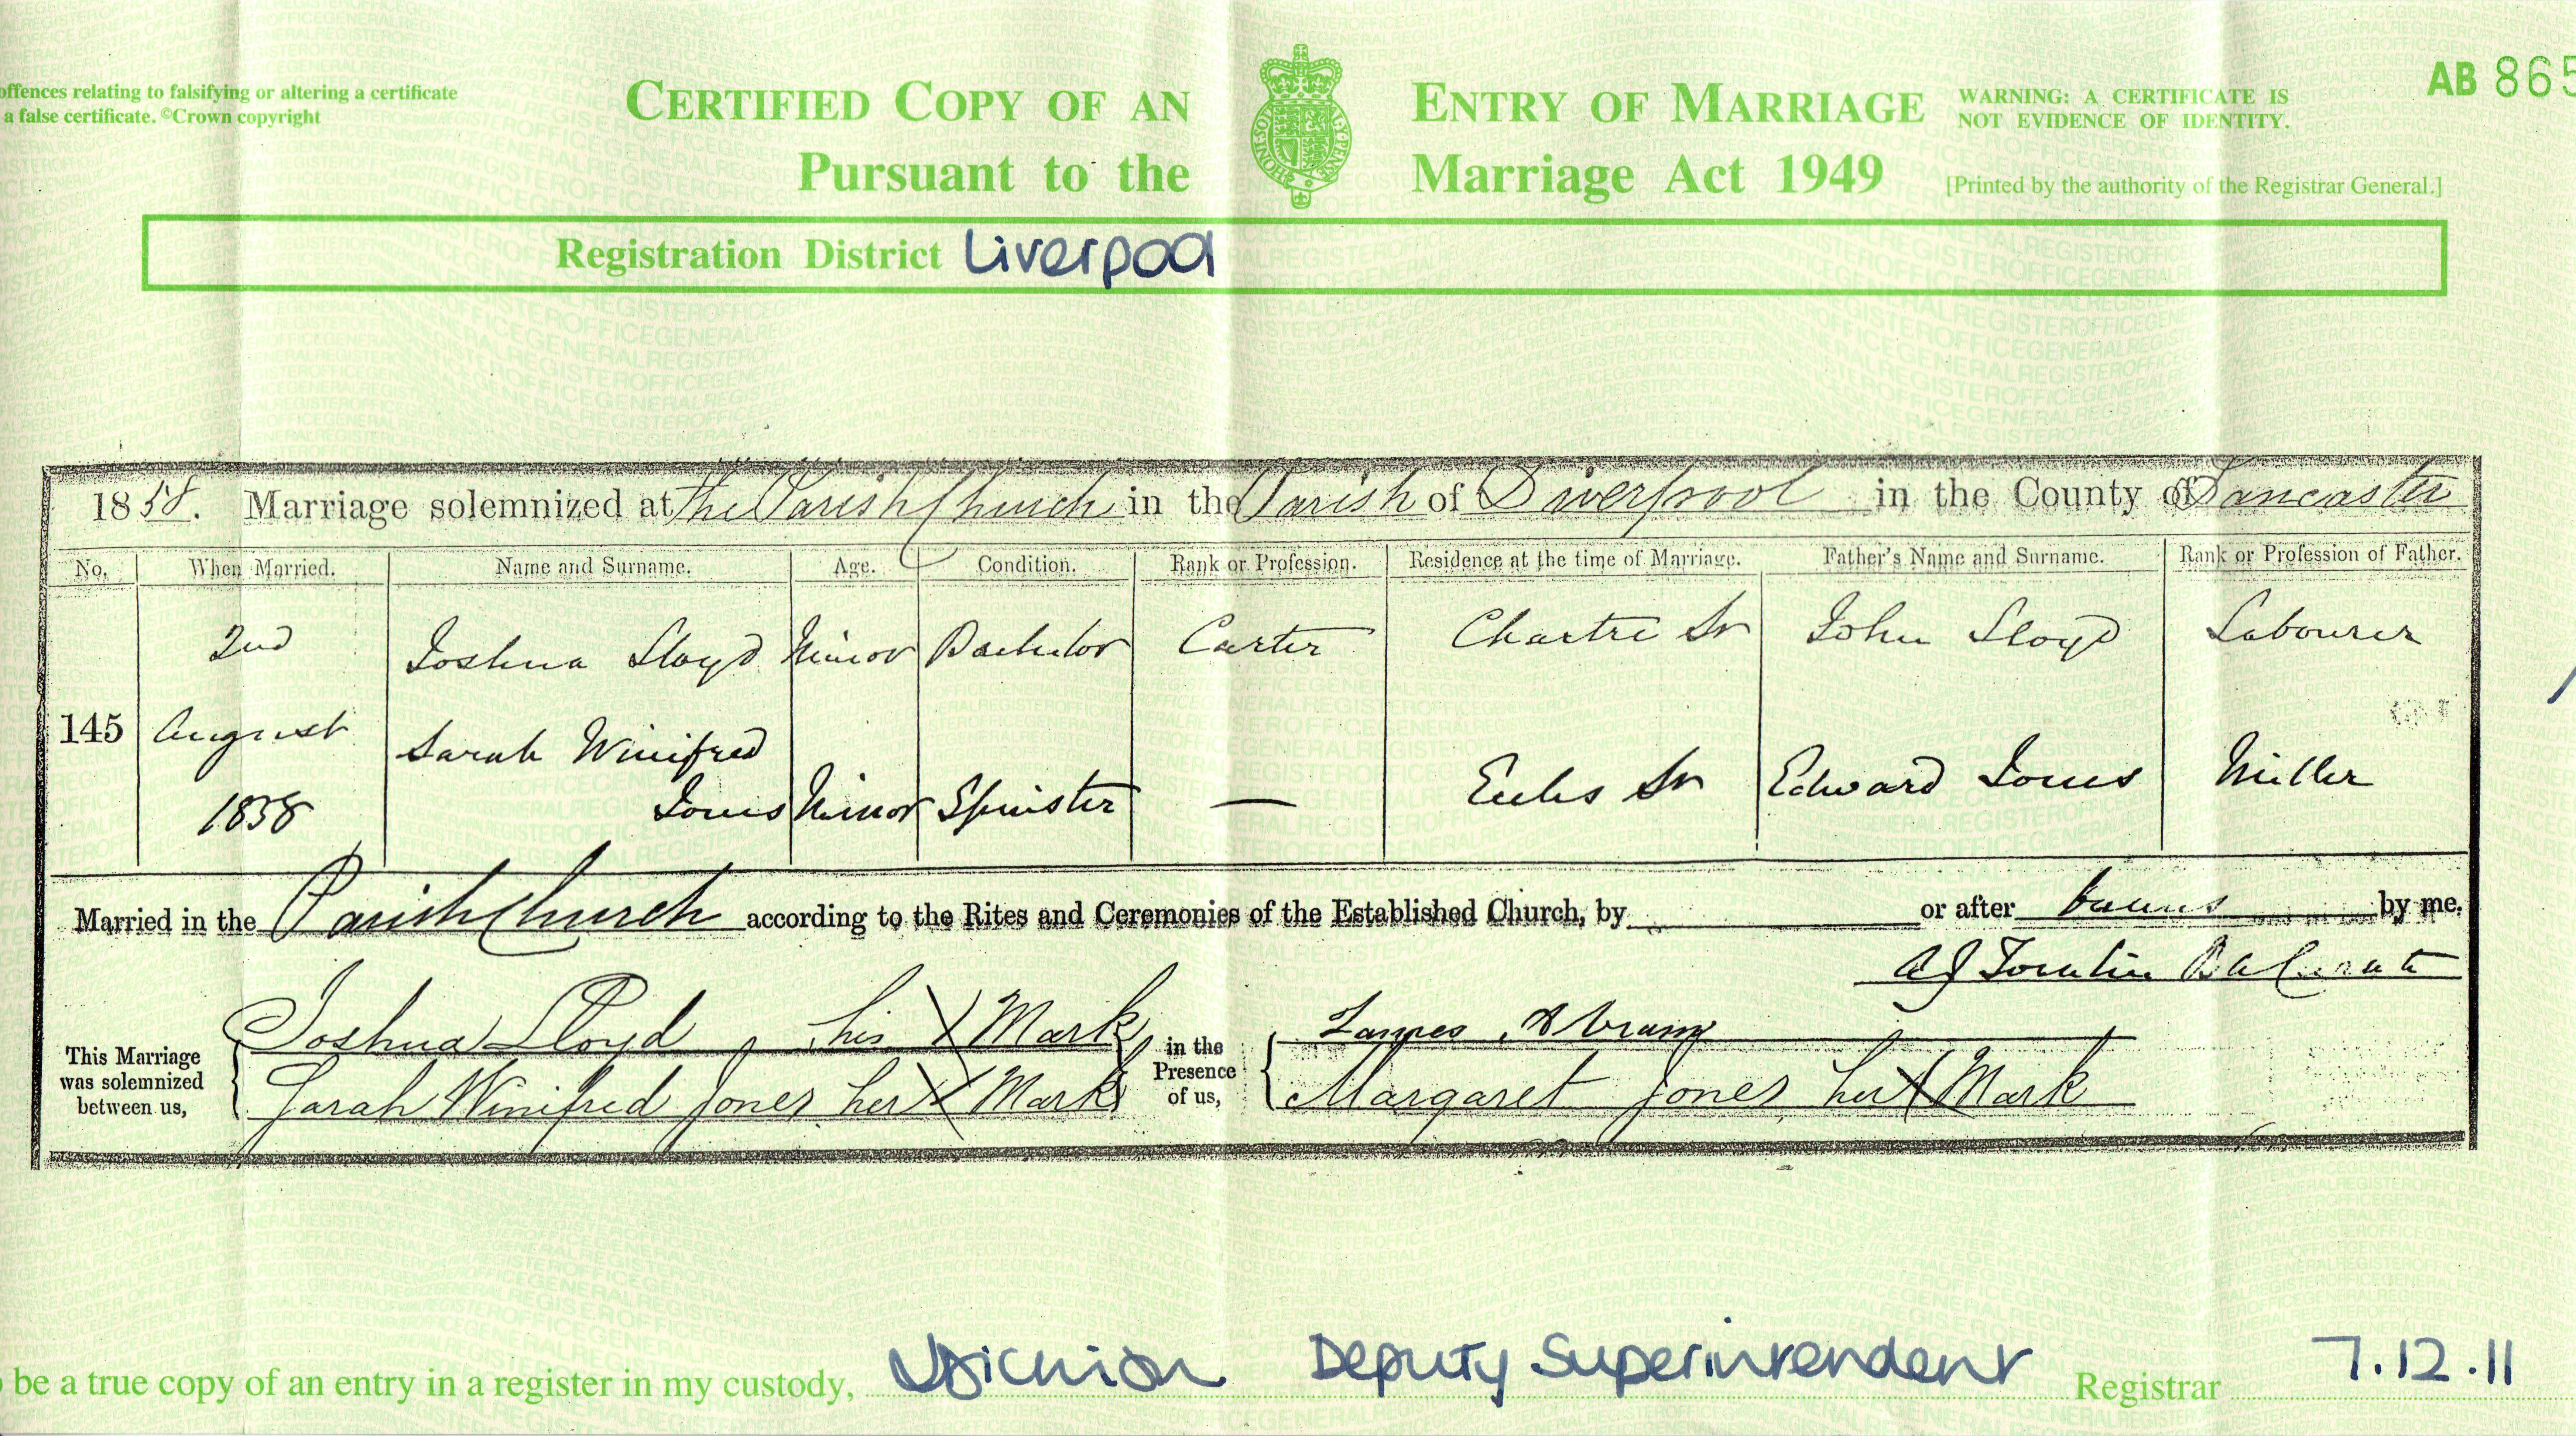 offences relating to falsifying or altering a certificate
a false certificate. ©Crown copyright
CERTIFIED COPY OF AN ENTRY OF MARRIAGE
Pursuant to the Marriage Act 1949
WARNING: A CERTIFICATE IS
NOT EVIDENCE OF IDENTITY.
AB 865
[Printed by the authority of the Registrar General.]
Registration District Liverpool
1858. Marriage solemnized at The Parish Church in the Parish of Liverpool in the County of Lancaster
No. When Married. Name and Surname. Age. Condition. Rank or Profession. Residence at the time of Marriage. Father's Name and Surname. Rank or Profession of Father.
2nd Joshua Lloyd Minor Bachelor Carter St John Lloyd Labourer
145 August Sarah Winifred
1858 Jones Minor Spinster — St Edward Jones Miller
Married in the Parish Church according to the Rites and Ceremonies of the Established Church, by or after banns by me,
Curate
This Marriage was solemnized between us, Joshua Lloyd his X Mark in the Presence of us, James Abram
Sarah Winifred Jones her X Mark Margaret Jones her X Mark
be a true copy of an entry in a register in my custody, Deputy Superintendent Registrar 7.12.11